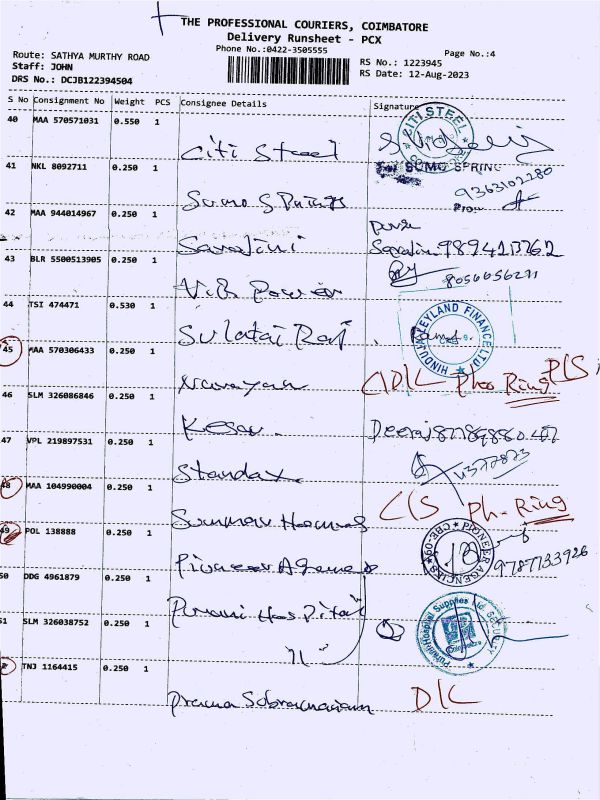 THE PROFESSIONAL COURIERS, COIMBATORE
Delivery Runsheet - PCX
Phone No.:0422-3505555
Page No.:4
Route: SATHYA MURTHY ROAD
Staff: JOHN
DRS No.: DCJB122394504
RS No.: 1223945
RS Date: 12-Aug-2023
S No Consignment No Weight PCS Consignee Details Signature
40 MAA 570571031 0.550 1
Citi Steel
CITI STEEL
41 NKL 8092711 0.250 1
For SUMO SPRING
9363102280
Sumo Springs
42 MAA 944014967 0.250 1
Sarojini
9894213262
43 BLR 5500513905 0.250 1
8056656271
V.B. Power
44 TSI 474471 0.530 1
HINDUJA LEYLAND FINANCE LTD
Sulatai Raj
45 MAA 570306433 0.250 1
Narayan
D/L Phno Ring P/S
46 SLM 326086846 0.250 1
Kesav.
Deeraj
47 VPL 219897531 0.250 1
Standax
48 MAA 104990004 0.250 1
C/S Ph. Ring
49 POL 138888 0.250 1
PIONEER AGENCIES CBE-09
9787133926
Pioneer
50 DDG 4961879 0.250 1
Purani Hospital
51 SLM 326038752 0.250 1
Purani Hospital Supplies SECURITY
Coimbatore
TNJ 1164415 0.250 1
Prema Subramaniam
D/L